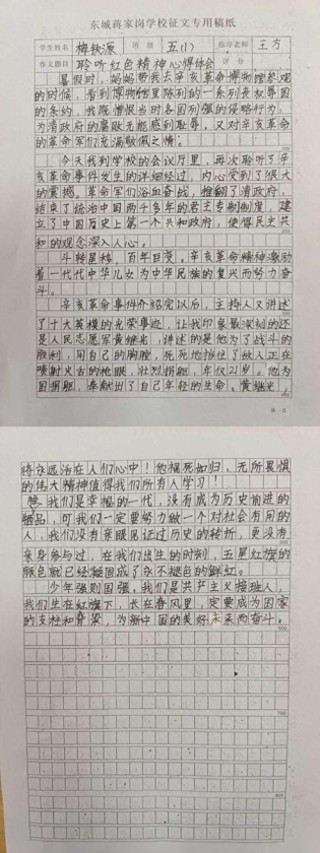 东城蒋家岗学校征文专用稿纸
学生姓名 梅钦源 班级 五(1) 指导老师 王方
作文题目 聆听红色精神心得体会 评分
暑假时,妈妈带我去辛亥革命博物馆参观
的时候,看到博物馆里陈列的一系列丧权辱国
的条约,我既憎恨当时各国列强的侵略行为,
为清政府的腐败无能感到耻辱,又对辛亥革
的革命军们充满敬佩之情。
今天我到学校的会议厅里,再次聆听了辛
亥革命事件发生的详细经过,内心受到了很大
的震撼。革命军们浴血奋战,推翻了清政府,
结束了统治中国两千多年的君主专制制度,建
立了中国历史上第一个共和政府,使得民主共
和的观念深入人心。
斗转星移,百年巨变。辛亥革命精神激励
着一代代中华儿女为中华民族的复兴而努力奋
斗。
辛亥革命事件介绍完以后,主持人又讲述
了十大英模的光荣事迹,让我印象最深刻的还
是人民志愿军黄继光,讲述的是他为了战斗的
胜利,用自己的胸膛,死死地抵住了敌人正在
喷射火舌的枪眼,壮烈捐躯,年仅21岁。他为
国捐躯,奉献出了自己年轻的生命。黄继光,
第 页
将永远活在人们心中!他视死如归、无所畏惧
的伟大精神值得我们所有人学习!
我们是幸福的一代,没有成为历史前进的
牺品,可我们一定要努力做一个对社会有用的
人,我们没有亲眼见证过历史的转折,更没有
亲身参与过,在我们出生的时刻,五星红旗的
颜色就已经凝固成了永不褪色的鲜红。
少年强则国强。我们是共产主义接班人,
我们生在红旗下,长在春风里,一定要成为国家
的支柱和脊梁,为新中国的美好未来而奋斗。